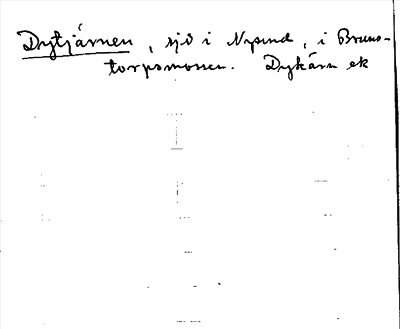 Drytjärnen, sjö i Nysund, i Bruns-
torpsmossen. Drykärn ek